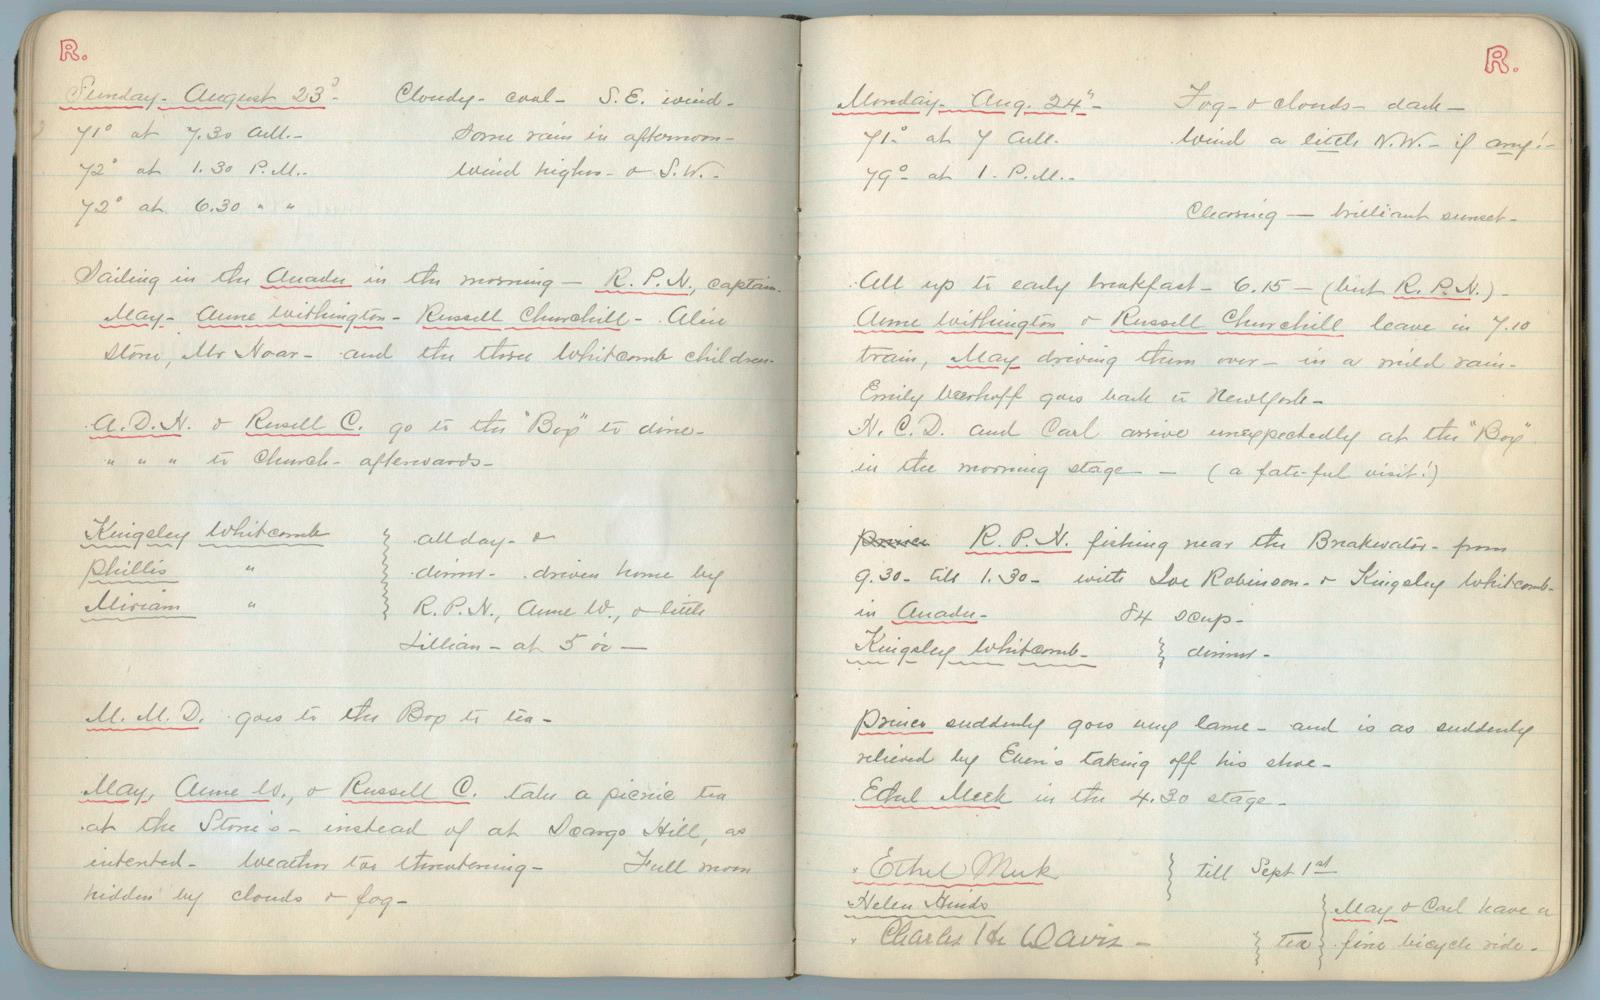 R.
Sunday- August 23d-  Cloudy- cool- S.E. wind-
71° at 7.30 A.M.-  Some rain in afternoon-
72° at 1.30 P.M.-  Wind higher- & S.W.-
72° at 6.30 " "
Sailing in the Anadu in the morning — R. P. N., captain.
May- Anne Withington- Russell Churchill- Alice
Stone, Mr Noar- and the three Whitcomb children-
A. D. N. & Russell C. go to the "Box" to dine-
" " " to Church- afterwards-
Kingsley Whitcomb } all day- &
Phillis " } dinner- driven home by
Miriam " } R.P.N., Anne W., & little
Lillian- at 5 o'c —
M. M. D. goes to the Box to tea-
May, Anne W., & Russell C. take a picnic tea
at the Stone's- instead of at Scargo Hill, as
intented- Weather too threatening-  Full moon
hidden by clouds & fog-
R.
Monday- Aug. 24"-  Fog- & clouds- dark-
71°- at 7 A.M.  Wind a little N.W.- if any!-
79°- at 1. P.M.-
Clearing — brilliant sunset-
All up to early breakfast- 6.15- (but R. P. N.)-
Anne Withington & Russell Churchill leave in 7.10
train, May driving them over- in a mild rain-
Emily goes back to New York-
N. C. D. and Carl arrive unexpectedly at the "Box"
in the morning stage- - (a fate-ful visit!)
Prince R. P. N. fishing near the Breakwater- from
9.30- till 1.30- with Joe Robinson- & Kingsley Whitcomb-
in Anadu-  84 scup-
Kingsley Whitcomb- } dinner-
Prince suddenly goes very lame- and is as suddenly
relieved by Eben's taking off his shoe-
Ethel Meek in the 4.30 stage-
Ethel Meek } till Sept 1st
Helen Hinds } May & Carl have a
Charles H. Davis- } tea } fine bicycle ride-